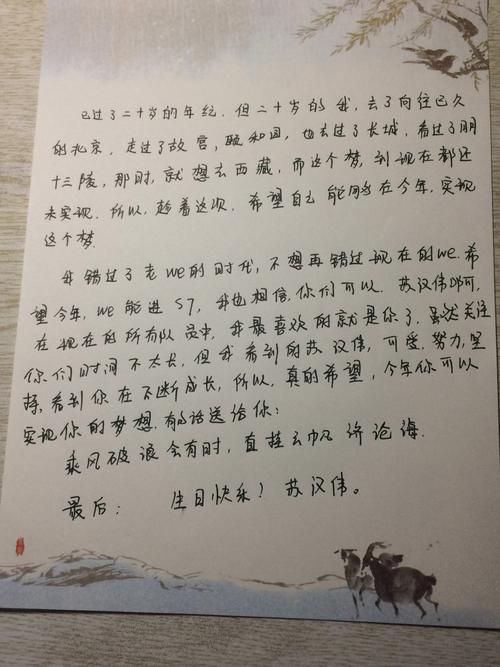 已过了二十岁的年纪.但二十岁的我,去了向往已久
的北京,走过了故宫,颐和园,也去过了长城,看过了明
十三陵,那时,就想去西藏,而这个梦,到现在都还
未实现.所以,趁着这次.希望自己能够在今年,实现
这个梦.
我错过了老we的时代,不想再错过现在的we.希
望今年,we能进S7,我也相信,你们可以.苏汉伟呀,
在现在的所有队员中,我最喜欢的就是你了.虽然关注
你们时间不太长,但我看到的苏汉伟,可爱.努力,坚
持,看到你在不断成长,所以,真的希望,今年你可以
实现你的梦想.有句话送给你:
乘风破浪会有时,直挂云帆济沧海.
最后: 生日快乐!苏汉伟。